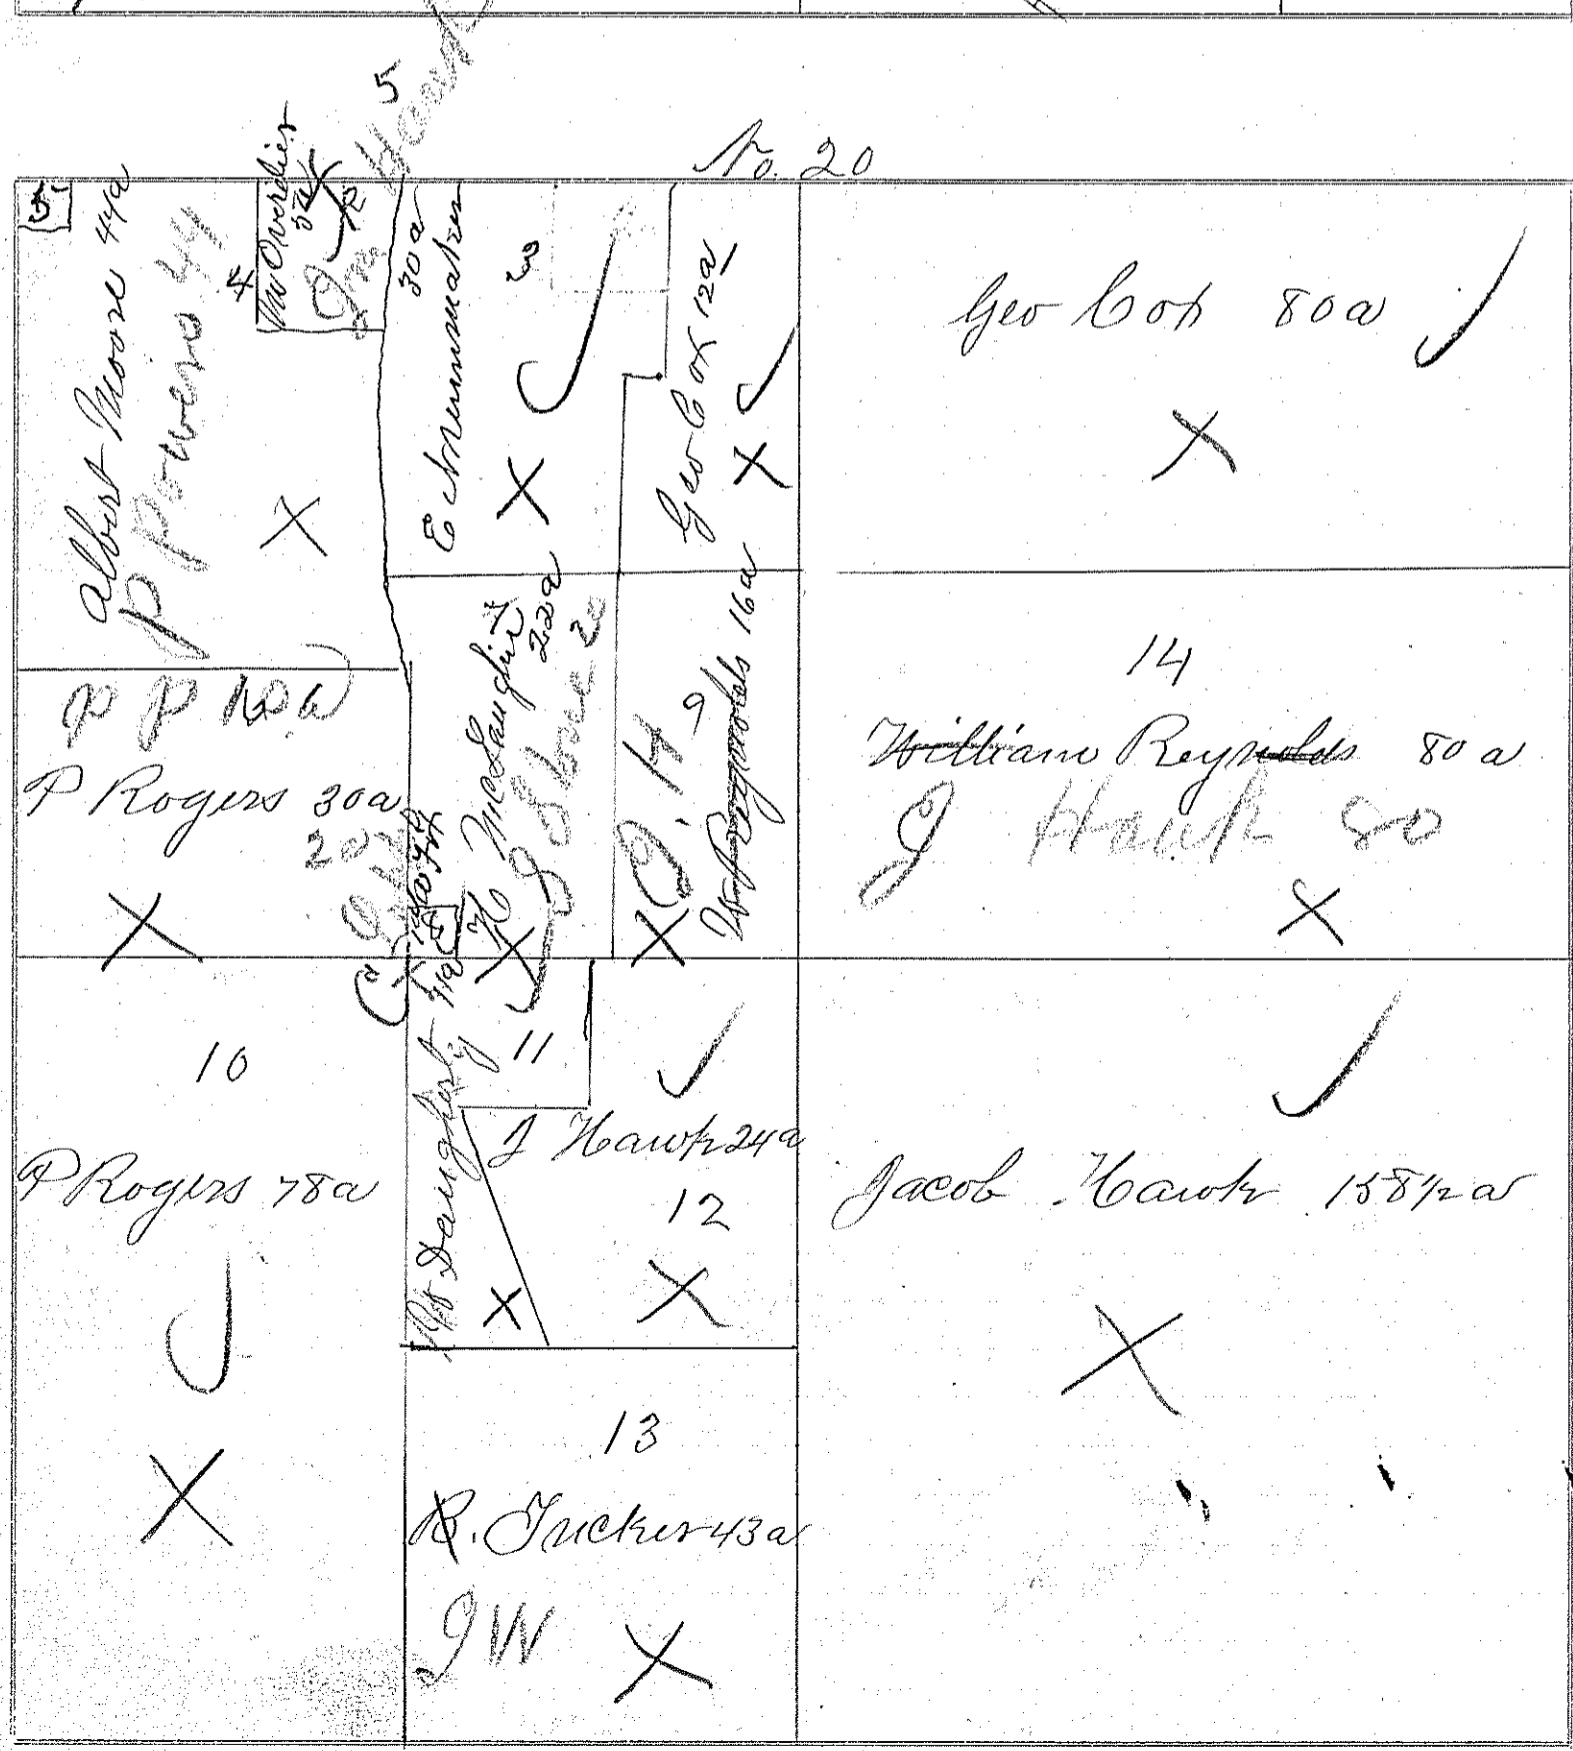 5
No. 20
5
Albert Moore 44a
P Powers 44
4
Overdier
30a
3
Geo Cox 12a
Geo Cox 80a
P P
P Rogers 30a
20
McLaughlin
22a
J. H
9
W Reynolds 16a
14
William Reynolds 80 a
J Hawk 80
10
P Rogers 78a
Daugherty
11
J Hawk 24a
12
Jacob Hawk 158 1/2 a
13
R. Tucker 43a
J W